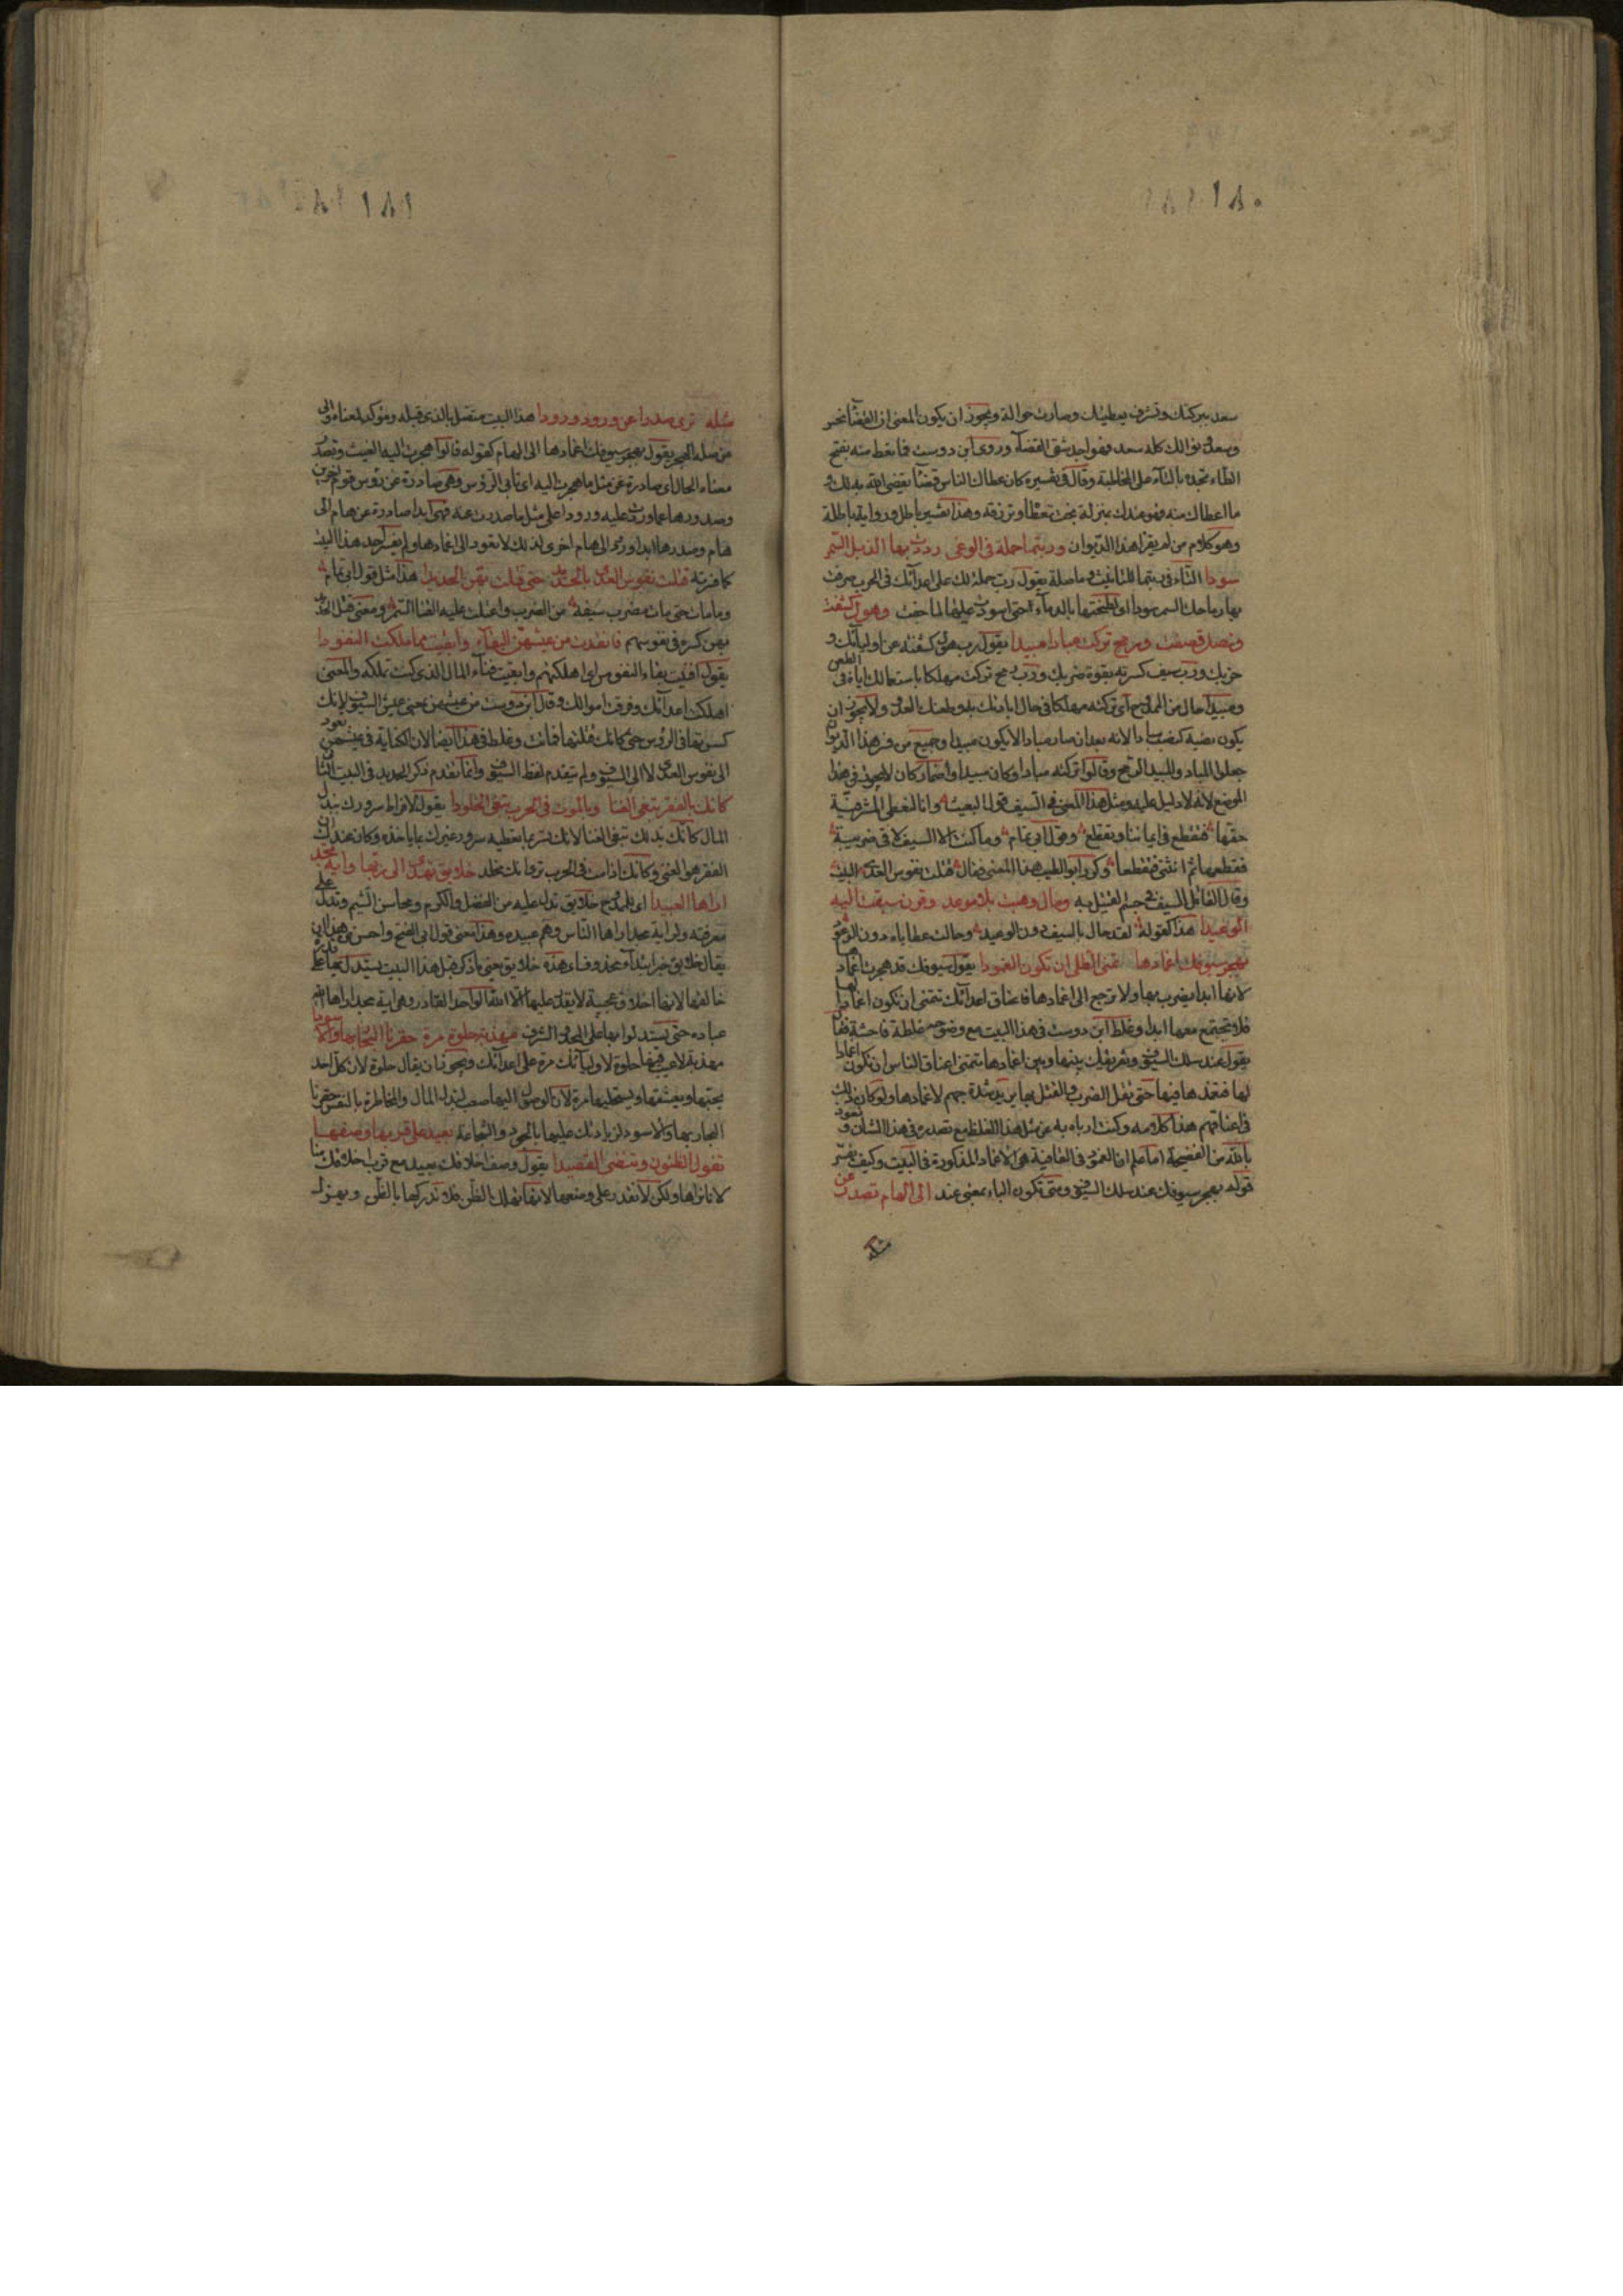 ١٨٠
سعد ببركتك وتشرف بعطيتك وصارت حوالة ويجوز ان يكون المعنى ان القضاء نحس
وسعد ونوالك كله سعد فهو احد شقى القضاء وروى ابن دوست فما تعط منه بفتح
الطاء تجده بالتاء على المخاطبة وقال فى تفسيره كان عطاك الناس قضاء يقضى الله بذلك و
ما اعطاك منه فهو عندك بمنزلة بخت تعطاه وترزقه وهذا تفسير باطل ورواية باطلة
وهو كلام من لم يقرا هذا الديوان وربتما حملة فى الوغى رددت بها الذبل السمر
سودا التاء فى ربتما للتانيث وما صلة يقول رب حملة لك على اعدائك فى الحرب صرفت
بها رماحك السمر سودا اى لطختها بالدماء حتى اسودت عليها لما جفت وهول كشفت
ونصل قصفت ورمح تركت مبادا مبيدا يقول رب هول كشفته عن اوليائك و
حزبك ورب سيف كسرته بقوة ضربك ورب رمح تركت مهلكا باستعمالك اياه فى الطعن
ومبيدا حال من الرمح اى تركته مهلكا فى حال ابادتك به وطعنك العدو ولا يجوز ان
يكون بصفة كنصب مبادا لانه بعد ان صار مبادا لا يكون مبيدا وجميع من فسر هذا الديوان
جعلوا المباد والمبيد الرمح وقالوا تركته مبادا وكان مبيدا واضمار كان لا يجوز فى هذا
الموضع لانه لا دليل عليه ومثل هذا المعنى فى السيف قول البعيث وانا لنعطى المشرفية
حقها فتقطع فى ايماننا وتقطع وقول ابى تمام وما كنت الا السيف لاقى ضريبة
فقطعها ثم انثنى فتقطعا وكرر ابو الطيب هذا المعنى فقال قتلت نفوس العدى البيت
وقال القائل السيف فى جسم القتيل به ومال وهبت بلا موعد وقرن سبقت اليه
الوعيدا هذا كقوله لقد حال بالسيف دون الوعيد وحالت عطاياه دون الوعود
بهجر سيوفك اغمادها تمنى الطلى ان تكون الغمودا يقول سيوفك قد هجرت اغمادها
لانها ابدا يضرب بها ولا ترجع الى اغمادها فاعناق اعدائك تتمنى ان تكون اغمادا لها
فلا تجتمع معها ابدا وغلط ابن دوست فى هذا البيت مع وضوحه غلطة فاحشة فقال
يقول عند سلك السيوف وتفريقك بينها وبين اغمادها تتمنى اعناق الناس ان تكون اغمادا
لها فتغمدها فيها حتى تقل الضرب والقتل بها يريد شدة حبهم لاغمادها ولو كان ذلك
فى اعناقهم هذا كلامه وكنت ارباه به عن مثل هذا الغلط مع تصدره فى هذا الشان ونعوذ
بالله من الفضيحة اما علم ان الغمود فى القافية هى الاغماد المذكورة فى البيت وكيف يفسر
قوله بهجر سيوفك عند سلك السيوف ومتى تكون الباء بمعنى عند الى الهام تصدر عن
مثله
١٨١
مثله ترى صدرا عن ورود ورودا هذا البيت متصل بالذى قبله ومؤكد لمعناه والى
من صلة الهجر يقول بهجر سيوفك اغمادها الى الهام كقوله قالوا هجرت اليه الغيث وتصدر
معناه الحال اى صادرة عن مثل ما هجرت اليه اى تاتى الرؤس وهى صادرة عن رؤس قوم اخرين
وصدورها عما وردت عليه ورودا على مثل ما صدرت عنه فهى ابدا صادرة عن هام الى
هام وصدرها ابدا ورود الى هام اخرى لذلك لا تعود الى اغمادها ولم يفسر احد هذا البيت
كما فسرته قتلت نفوس العدى بالحديد حتى قتلت بهن الحديدا هذا مثل قول ابى تمام
وما مات حتى مات مضرب سيفه من الضرب واعتلت عليه القنا السمر ومعنى قتل الحديد
بهن كسره فى نفوسهم فانفدت من عيشهن البقاء وابقيت مما ملكت النفودا
يقول افنيت بقاء النفوس اى اهلكتهم وابقيت فناء المال الذى كنت تملكه والمعنى
اهلكت اعدائك وفرقت اموالك وقال ابن دوست من عيشهن يعنى عيش السيوف لانك
كسرتها فى الرؤس حتى كانك قتلتها فماتت وغلط فى هذا ايضا لان الكناية فى عيشهن تعود
الى نفوس العدى لا الى السيوف ولم يتقدم لفظ السيوف وانما تقدم ذكر الحديد فى البيت الثانى
كانك بالفقر تبغى الغنا وبالموت فى الحرب تبغى الخلودا يقول لافراط سرورك ببذل
المال كانك بذلك تبغى الغنا لانك تسر بما تعطيه سرور غيرك بما ياخذه وكان عندك ان
الفقر هو الغنى وكانك اذا مت فى الحرب ترى انك مخلد خلائق تهدى الى ربها واية مجد
اراها العبيدا اى للممدوح خلائق تدل عليه من الفضل والكرم ومحاسن الشيم وتدل على
معرفته ولى اية مجد اراها الناس وهم عبيده وهذا معنى قول ابى الفتح واحسن من هذا ان
يقال خلائق خبر ابتداء محذوف اى هذه خلائق حتى ما ذكر قبل هذا البيت يستدل بها على قدرة
خالقها لانها اخلاق عجيبة لا يقدر عليها الا الله الواحد القادر وهى اية مجد اراها الله
عباده حتى يستدلوا بها على المجد والشرف مهذبة حلوة مرة حقرنا البحار بها والاسودا
مهذبة لا عيب فيها حلوة لاوليائك مرة على اعدائك ويجوز ان يقال حلوة لان كل احد
يحبها ويعشقها ويستحليها مرة لان الوصول اليها صعب لبذل المال والمخاطرة بالنفس حقرنا
البحار بها والاسود لزيادتك عليها بالجود والشجاعة بعيد على قربها وصفها
تغول الظنون وتنضى القصيدا يقول وصف اخلاقك بعيد مع قرب اخلاقك منا
لانا نراها ولكن لا نقدر على وصفها لانها تهلك الظن فلا ندركها بالظن وتهزل